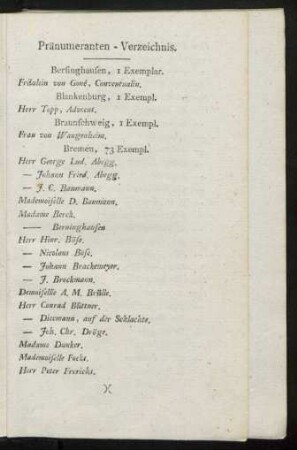 Pränumeranten - Verzeichnis.
Bersinghausen, 1 Exemplar.
Fräulein von Goné, Conventualin.
Blankenburg, 1 Exempl.
Herr Topp, Advocat.
Braunschweig, 1 Exempl.
Frau von Wangenheim.
Bremen, 73 Exempl.
Herr George Lud. Abegg.
— Johann Fried. Abegg.
— J. C. Baumann.
Mademoiselle D. Baumann.
Madame Berck.
—— Berninghausen
Herr Hinr. Böse.
— Nicolaus Böse.
— Johann Brackemeyer.
— J. Brockmann.
Demoiselle A. M. Brülle.
Herr Conrad Büttner.
— Dieemann, auf der Schlachte.
— Joh. Chr. Dröge.
Madame Dunker.
Mademoiselle Focke.
Herr Peter Frerichs.
)(